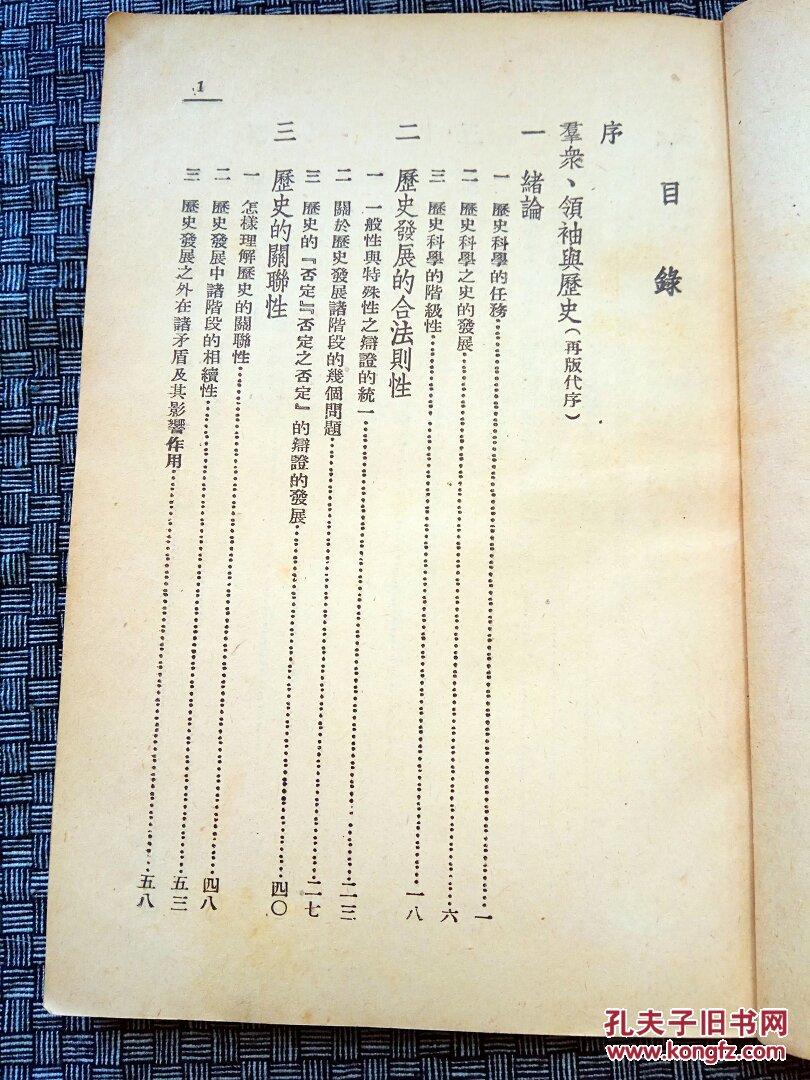 目錄
序
羣衆、領袖與歷史（再版代序）
一 緒論
一 歷史科學的任務……一
二 歷史科學之史的發展……六
三 歷史科學的階級性……一八
二 歷史發展的合法則性
一 一般性與特殊性之辯證的統一……二三
二 關於歷史發展諸階段的幾個問題……二七
三 歷史的『否定』『否定之否定』的辯證的發展……四〇
三 歷史的關聯性
一 怎樣理解歷史的關聯性……四八
二 歷史發展中諸階段的相續性……五三
三 歷史發展之外在諸矛盾及其影響作用……五八
1
孔夫子旧书网
www.kongfz.com